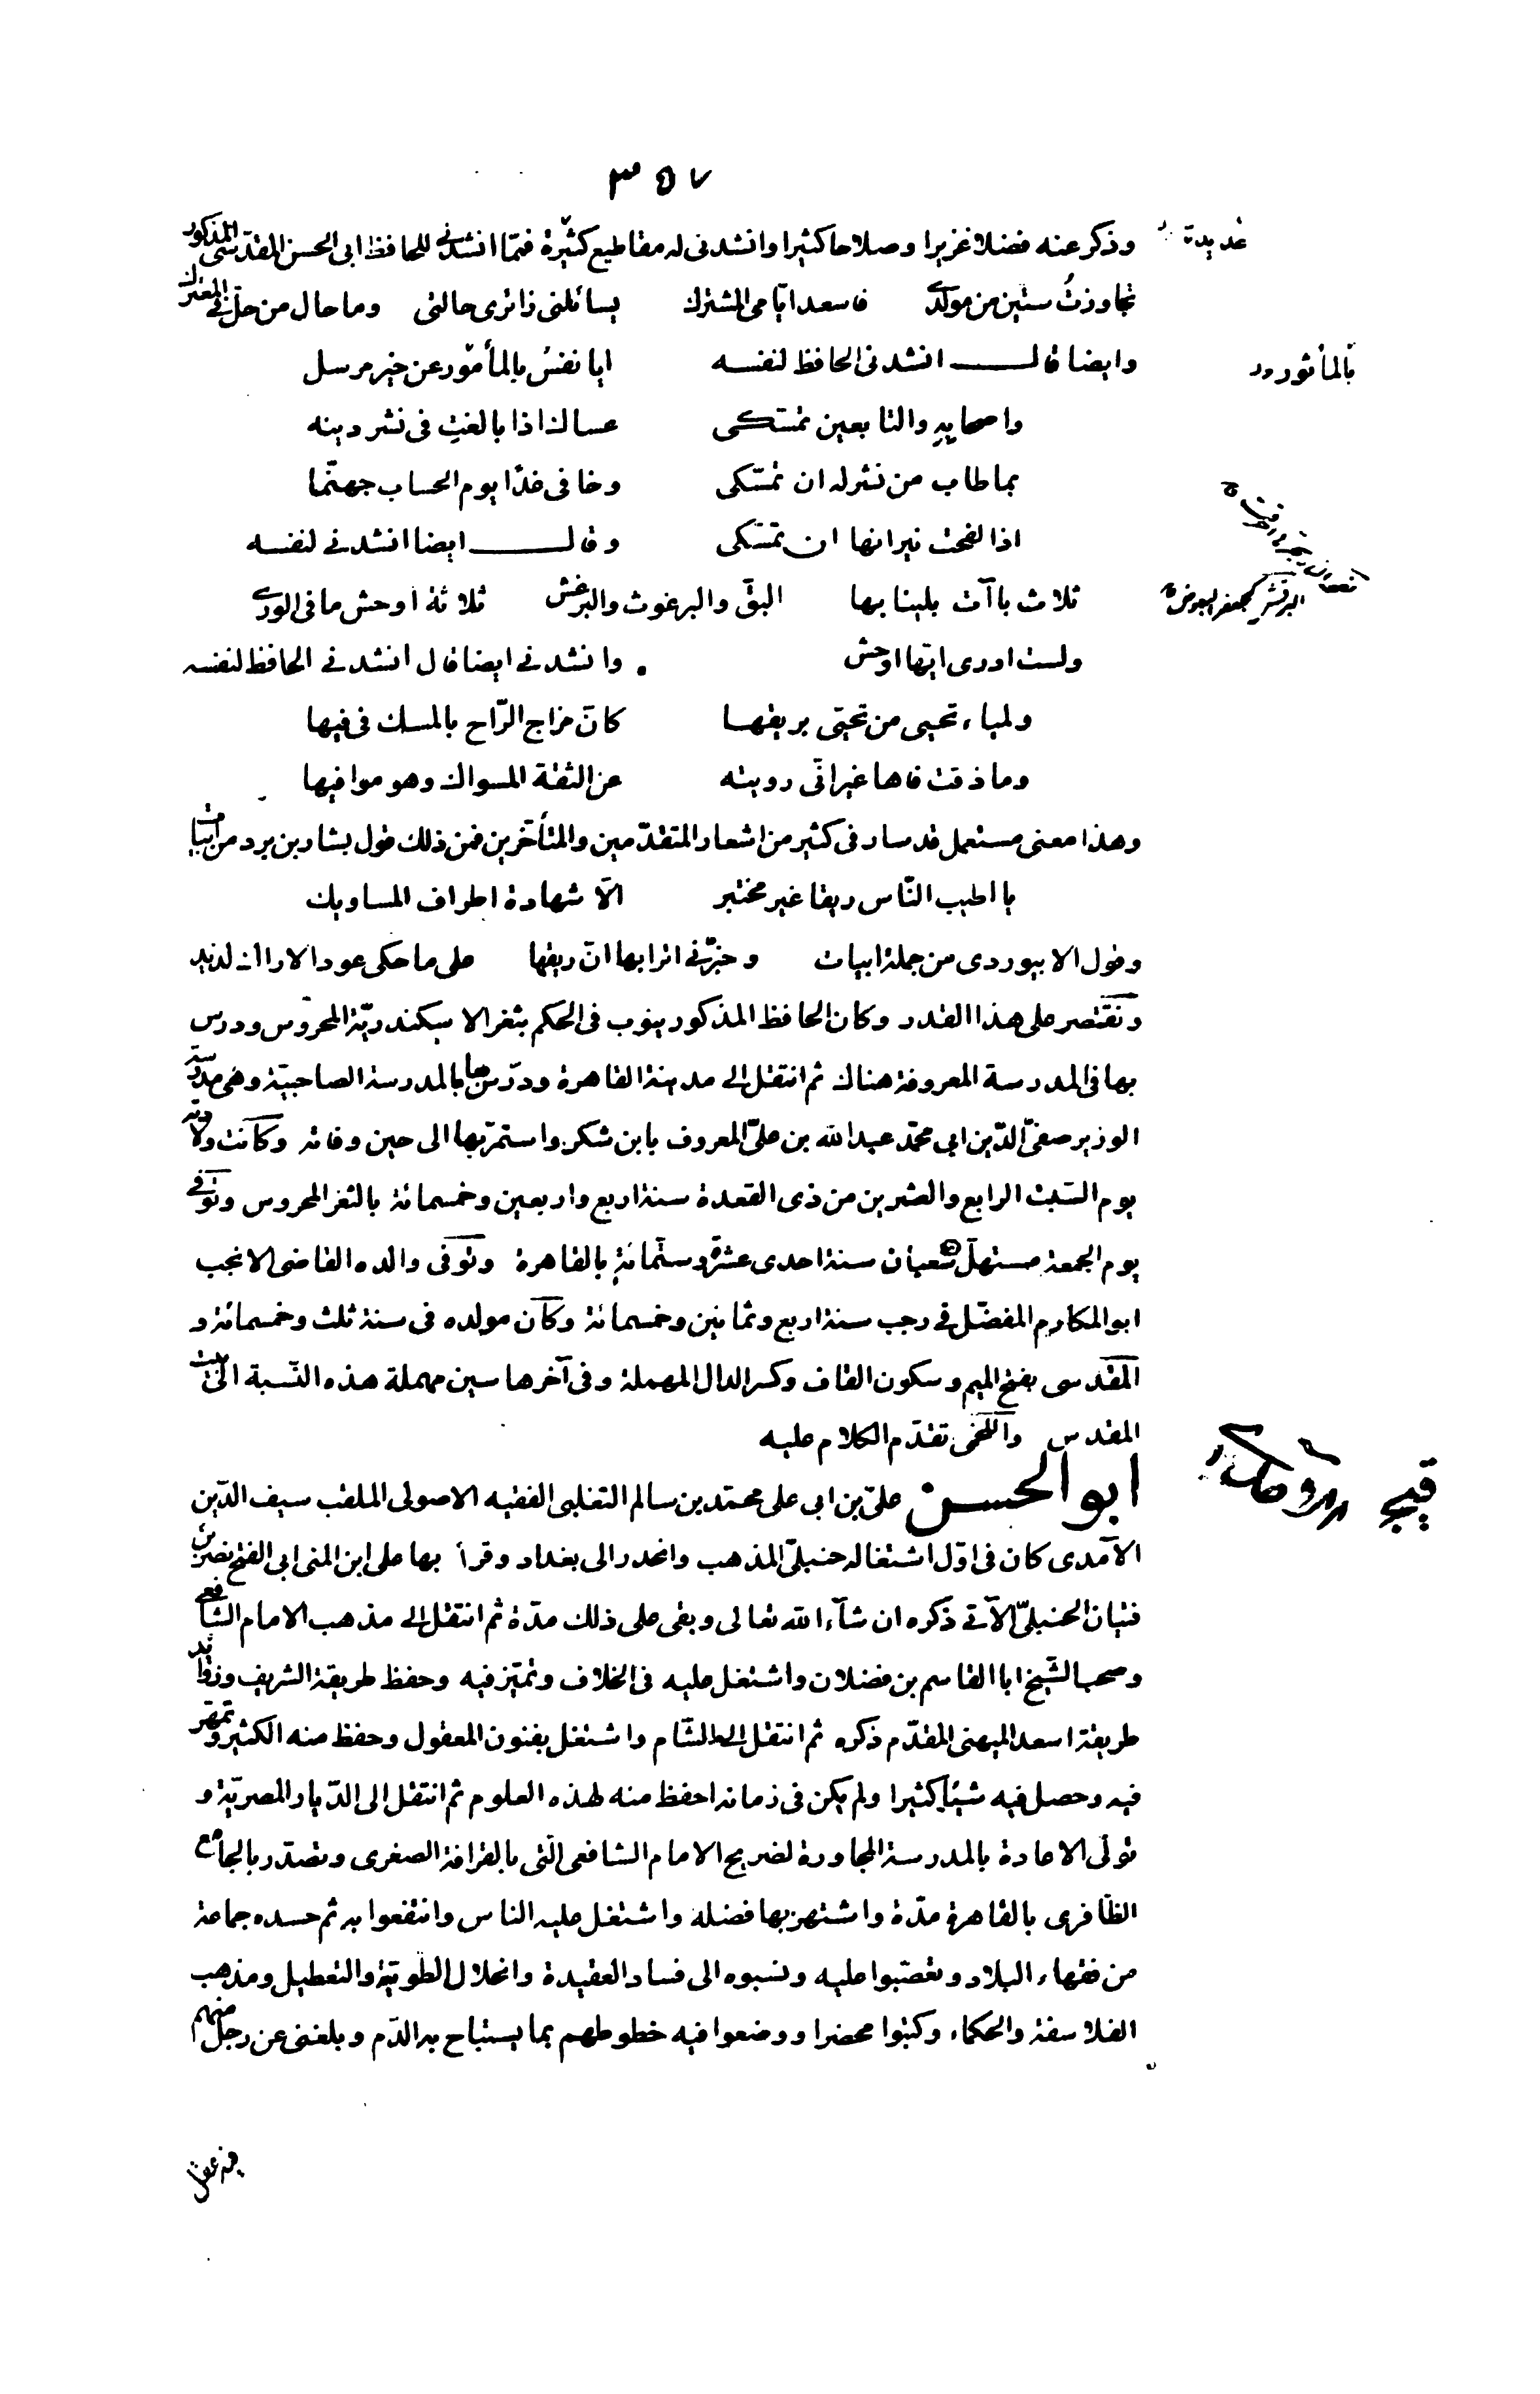 ٣٥٧
وذكر عنه فضلا غزيرا وصلاحا كثيرا وانشدنى له مقاطيع كثيرة فمّا انشدنى للحافظ ابى الحسن المقدّسى المذكور
عديدة
تجاوزتُ ستين من مولدى فاسعد ايّامى المشترك يسائلنى زائرى حالتى وما حال من حلّ فى المعترك
وايضا قال انشدنى الحافظ لنفسه ايا نفسُ بالمأمور عن خير مرسل
بالمأثور
واصحابه والتابعين تمسّكى عساك اذا بالغتِ فى نشر دينه
بما طاب من نشر له ان تمسّكى وخافى غدًا يوم الحساب جهنّما
اذا لفحت نيرانها ان تمسّكى وقال ايضا انشدنى لنفسه
ثلاث باآت بلينا بها البقّ والبرغوث والبرغش ثلاثة اوحش ما فى الورى
البرغش كجعفر البعوض
ولست ادرى ايّها اوحش وانشدنى ايضا قال انشدنى الحافظ لنفسه
ولمياء تحيى من تحيّى بريقها كانّ مزاج الرّاح بالمسك فى فيها
وما ذقت فاها غير انّى رويته عن الثقة المسواك وهو موافيها
وهذا معنى مستعمل قد سار فى كثير من اشعار المتقدّمين والمتأخّرين فمن ذلك قول بشار بن برد من ابيات
يا اطيب النّاس ريقا غير مختبر الّا شهادة اطراف المساويك
وقول الابيوردى من جملة ابيات وخبّرنى اترابها انّ ريقها على ما حكى عود الاراك لذيذ
ونقتصر على هذا القدر وكان الحافظ المذكور ينوب فى الحكم بثغر الاسكندريّة المحروس ودرس
بها فى المدرسة المعروفة هناك ثم انتقل الى مدينة القاهرة ودرّس بها بالمدرسة الصاحبيّة وهى مدرسة
الوزير صفىّ الدّين ابى محمّد عبد الله بن علىّ المعروف بابن شكر واستمرّ بها الى حين وفاته وكانت ولادته
يوم السّبت الرابع والعشرين من ذى القعدة سنة اربع واربعين وخمسمائة بالثغر المحروس وتوفى
يوم الجمعة مستهلّ شعبان سنة احدى عشرة وستّمائة بالقاهرة وتوفى والده القاضى الانجب
ابو المكارم المفضّل فى رجب سنة اربع وثمانين وخمسمائة وكان مولده فى سنة ثلث وخمسمائة و
المقدسى بفتح الميم وسكون القاف وكسر الدال المهملة وفى آخرها سين مهملة هذه النّسبة الى بيت
المقدس واللخمى تقدّم الكلام عليه
ابو الحسن علىّ بن ابى على محمّد بن سالم التغلبى الفقيه الاصولى الملقب سيف الدّين
الآمدى كان فى اوّل اشتغاله حنبلىّ المذهب وانحدر الى بغداد وقرأ بها على ابن المنى ابى الفتح نصر بن
فتيان الحنبلىّ الآتى ذكره ان شآء الله تعالى وبقى على ذلك مدّة ثم انتقل الى مذهب الامام الشافعى
وصحب الشّيخ ابا القاسم بن فضلان واشتغل عليه فى الخلاف وتميّز فيه وحفظ طريقة الشريف وزوائد
طريقة اسعد الميهنى المقدّم ذكره ثم انتقل الى الشّام واشتغل بفنون المعقول وحفظ منه الكثير وتمهّر
فيه وحصل فيه شيئا كثيرا ولم يكن فى زمانه احفظ منه لهذه العلوم ثم انتقل الى الدّيار المصريّة و
تولّى الاعادة بالمدرسة المجاورة لضريح الامام الشافعى الّتى بالقرافة الصغرى وتصدّر بالجامع
الظّافرى بالقاهرة مدّة واشتهر بها فضله واشتغل عليه الناس وانتفعوا به ثم حسده جماعة
من فقهاء البلاد وتعصّبوا عليه ونسبوه الى فساد العقيدة وانحلال الطويّة والتعطيل ومذهب
الفلاسفة والحكماء وكتبوا محضرا ووضعوا فيه خطوطهم بما يستباح به الدّم وبلغنى عن رجل منهم
فيه عقل